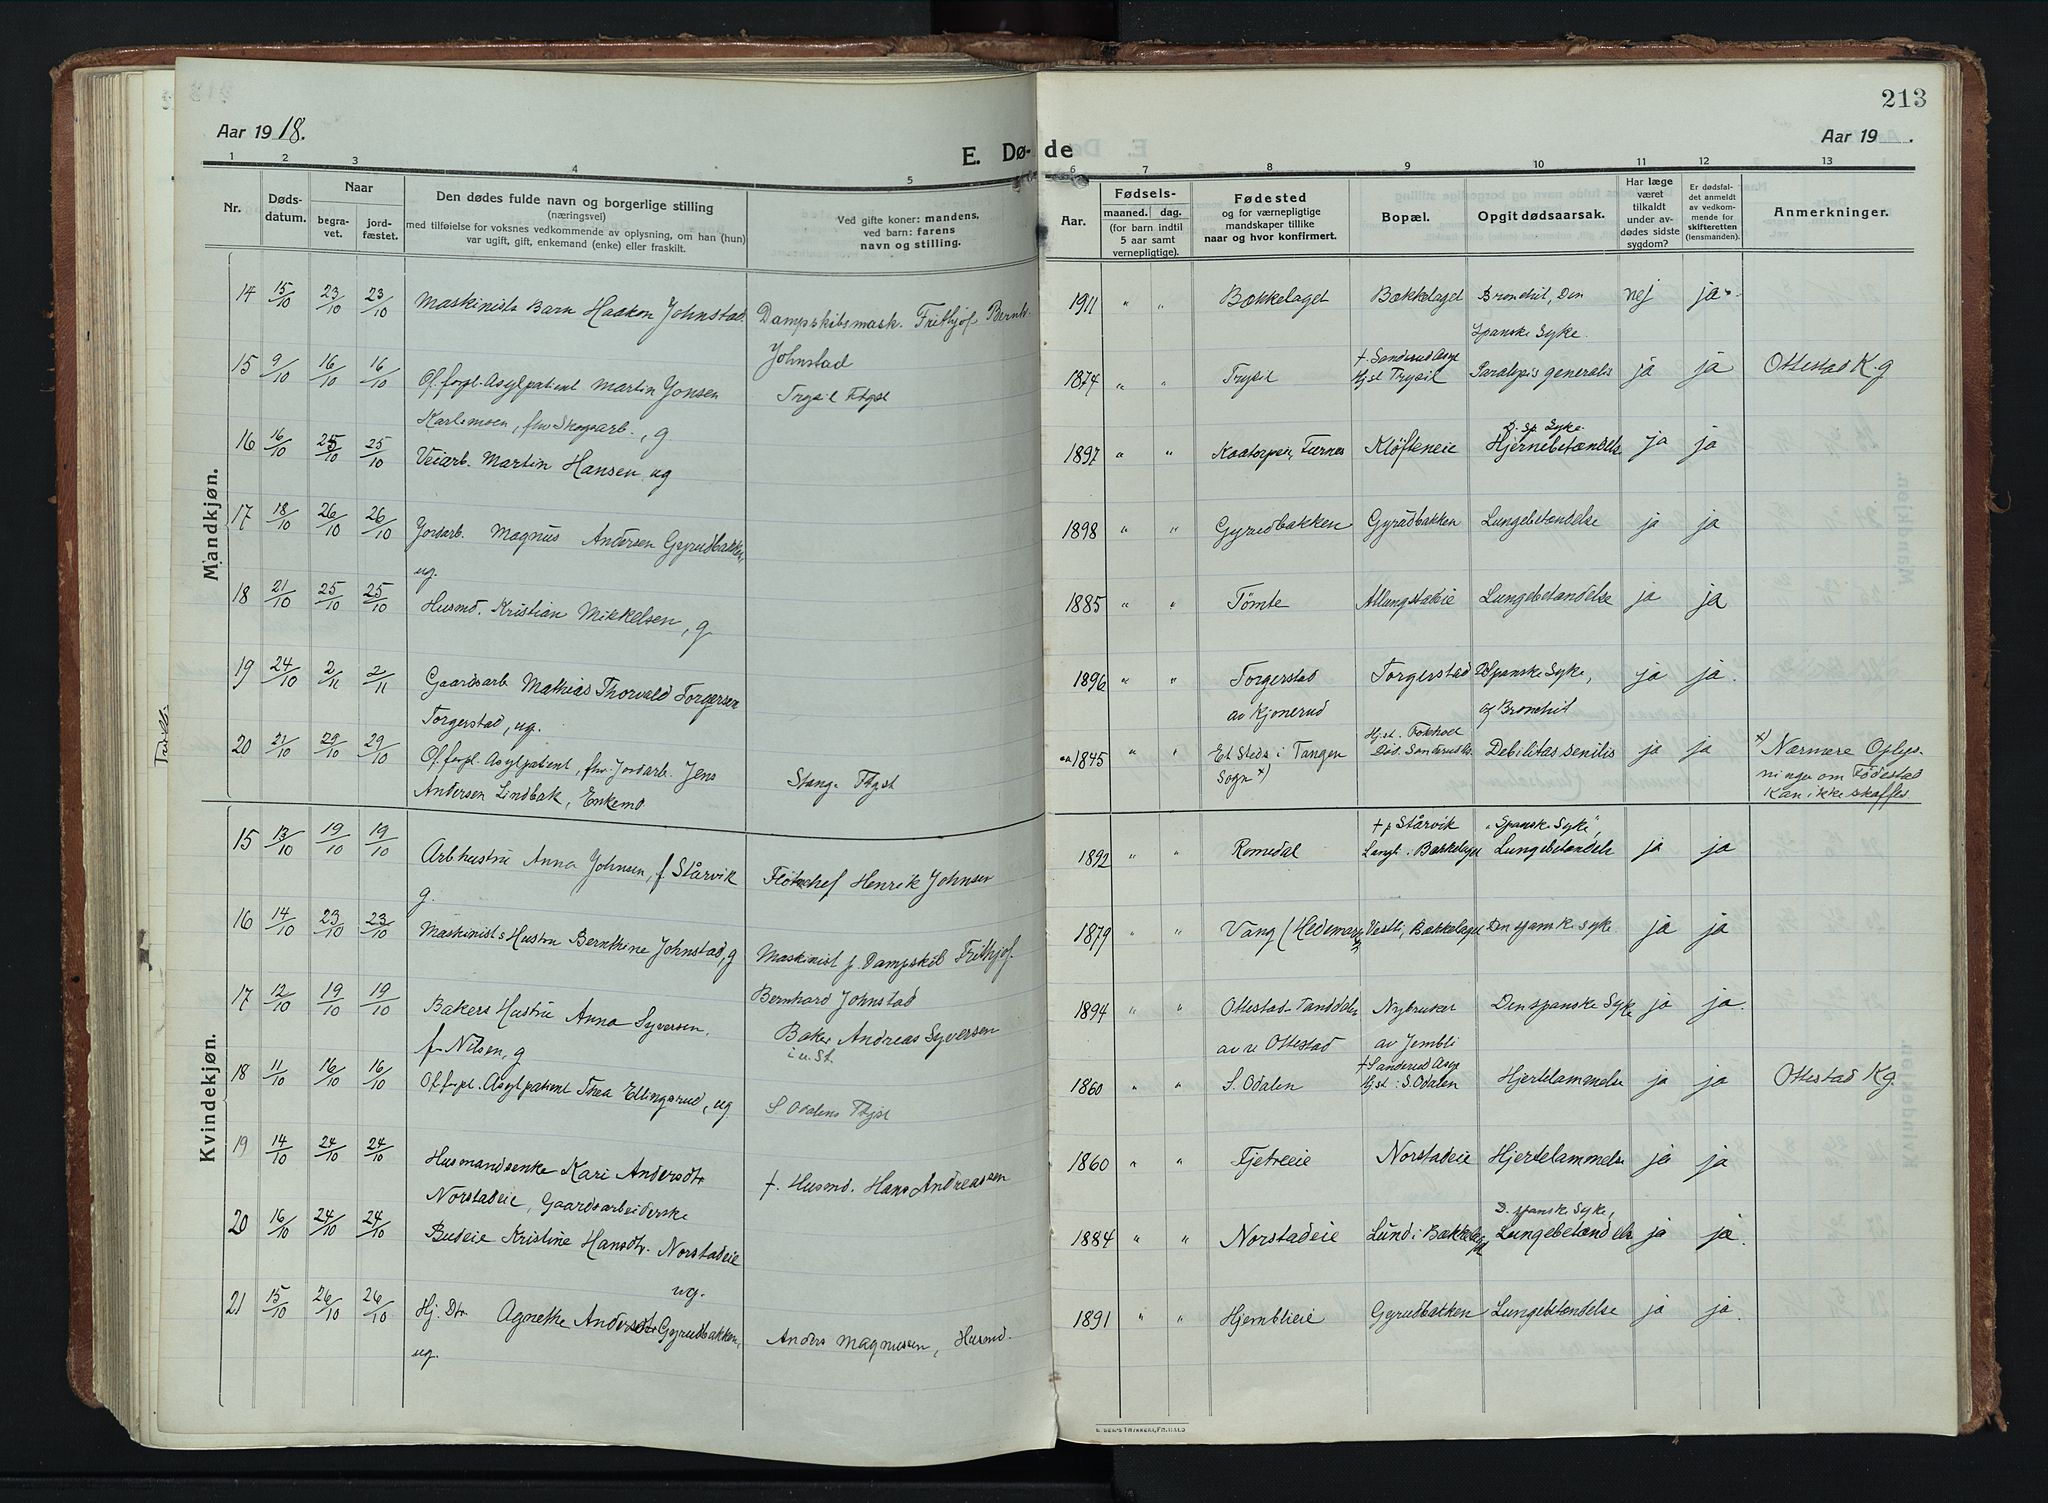 213
Aar 1918.
Aar 19 .
E. Dø- de
1 2 3 4 5 6 7 8 9 10 11 12 13
Nr.
Døds-
datum.
Naar
begra-
vet.
jord-
fæstet.
Den dødes fulde navn og borgerlige stilling
(næringsvei)
med tilføielse for voksnes vedkommende av oplysning, om han (hun)
var ugift, gift, enkemand (enke) eller fraskilt.
Ved gifte koner: mandens,
ved barn: farens
navn og stilling.
Aar.
Fødsels-
maaned. dag.
(for barn indtil
5 aar samt
vernepligtige).
Fødested
og for værnepligtige
mandskaper tillike
naar og hvor konfirmert.
Bopæl.
Opgit dødsaarsak.
Har læge
været
tilkaldt
under av-
dødes sidste
sygdom?
Er dødsfal-
det anmeldt
av vedkom-
mende for
skifteretten
(lensmanden).
Anmerkninger.
Mandkjøn.
14 15/10 23/10 23/10 Maskinists Barn Haakon Johnstad. Dampskibsmask. Frithjof Bernh. Johnstad 1911 " " Bækkelaget Bækkelaget Bronchit, Den Spanske Syke. nej ja.
15 9/10 16/10 16/10 Of. forpl. Asylpatient Martin Jonsen Karlsmoen, fhv Skogsarb., g Trysil Ftgst 1874 " " Trysil † Sanderud Asyl Hjst Trysil Paralysis generalis ja ja Ottestad Kg
16 16/10 25/10 25/10 Veiarb. Martin Hansen ug 1897 " " Kaatorpei, Furnes Kløfteneie D. sp. Syke. Hjernebetændelse ja ja
17 18/10 26/10 26/10 Jordarb. Magnus Andersen Gyrudbakken, ug. 1898 " " Gyrudbakken Gyrudbakken Lungebetændelse ja ja
18 21/10 25/10 25/10 Husmd. Kristian Mikkelsen, g 1885 " " Tømte Allungstadeie Lungebetændelse ja ja
19 24/10 2/11 2/11 Gaardsarb Mathias Thorvald Torgersen Torgerstad, ug. 1896 " " Torgerstad av Kjonerud Torgerstad D. Spanske Syke, og Bronchit ja ja.
20 21/10 29/10 29/10 Of. forpl. Asylpatient, fhv. Jordarb. Jens Andersen Lindbak, Enkemd Stange Ftgst ca 1845 " " Et Steds i Tangen Sogn x) Hjst. Døds. Sanderud Debilitas senilis ja ja x) Nærmere Oplys- ninger om Fødestad kan ikke skaffes.
Kvindekjøn.
15 13/10 19/10 19/10 Arbhustru Anna Johnsen, f Stårvik g. Henrik Johnsen 1892 " " Romedal † p Stårvik Bækkelaget "Spanske Syke", Lungebetændelse ja ja
16 14/10 23/10 23/10 Maskinists Hustru Bernthine Johnstad, g Maskinist p. Dampskib Frithjof Bernhard Johnstad 1879 " " Vang (Hedemark) Vestli, Bækkelaget Den spanske syke ja ja
17 12/10 19/10 19/10 Bakers Hustru Anna Syversen, f. Nilsen, g Baker Andreas Syversen 1894 " " Ottestad av n Ottestad Nybruket av Jembli Den spanske Syke ja ja.
18 11/10 16/10 16/10 Of. forpl. Asylpatient Thea Ellingsrud, ug S. Odalens Ftgst 1860 " " S. Odalen † Sanderud Asyl Hjst: S. Odalen Hjertelammelse ja ja Ottestad Kg.
19 14/10 24/10 24/10 Husmandsenke Kari Andersdtr Norstadeie, Gaardsarbeiderske †. Husmd. Hans Andreassen 1860 " " Fjetreeie Norstadeie Hjertelammelse ja ja
20 16/10 24/10 24/10 Budeie Kristine Hansdtr. Norstadeie ug. 1884 " " Norstadeie Lund i Bækkelaget D. spanske Syke, Lungebetændelse ja ja.
21 15/10 26/10 26/10 Hj. Dtr. Agnethe Andersdtr Gyrudbakken, ug. Anders Magnussen, Husmd. 1891 " " Hjemblieie Gyrudbakken Lungebetændelse ja ja.